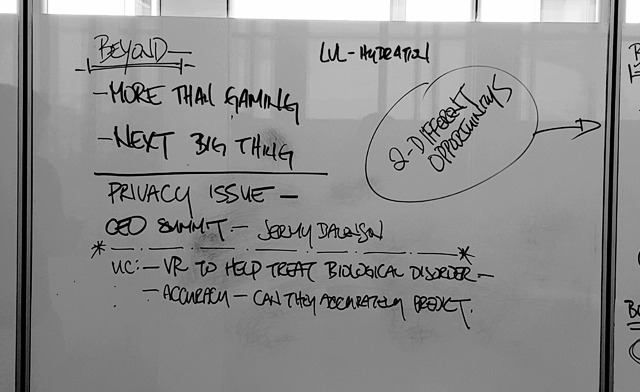 BEYOND—
LVL-HYDRATION
-MORE THAN GAMING
-NEXT BIG THING
2-DIFFERENT
OPPORTUNITYS
PRIVACY ISSUE —
CEO SUMMIT — JERMY
UC:— VR TO HELP TREAT BIOLOGICAL DISORDER—
— ACCURACY — CAN THEY ACCURATELY PREDICT.